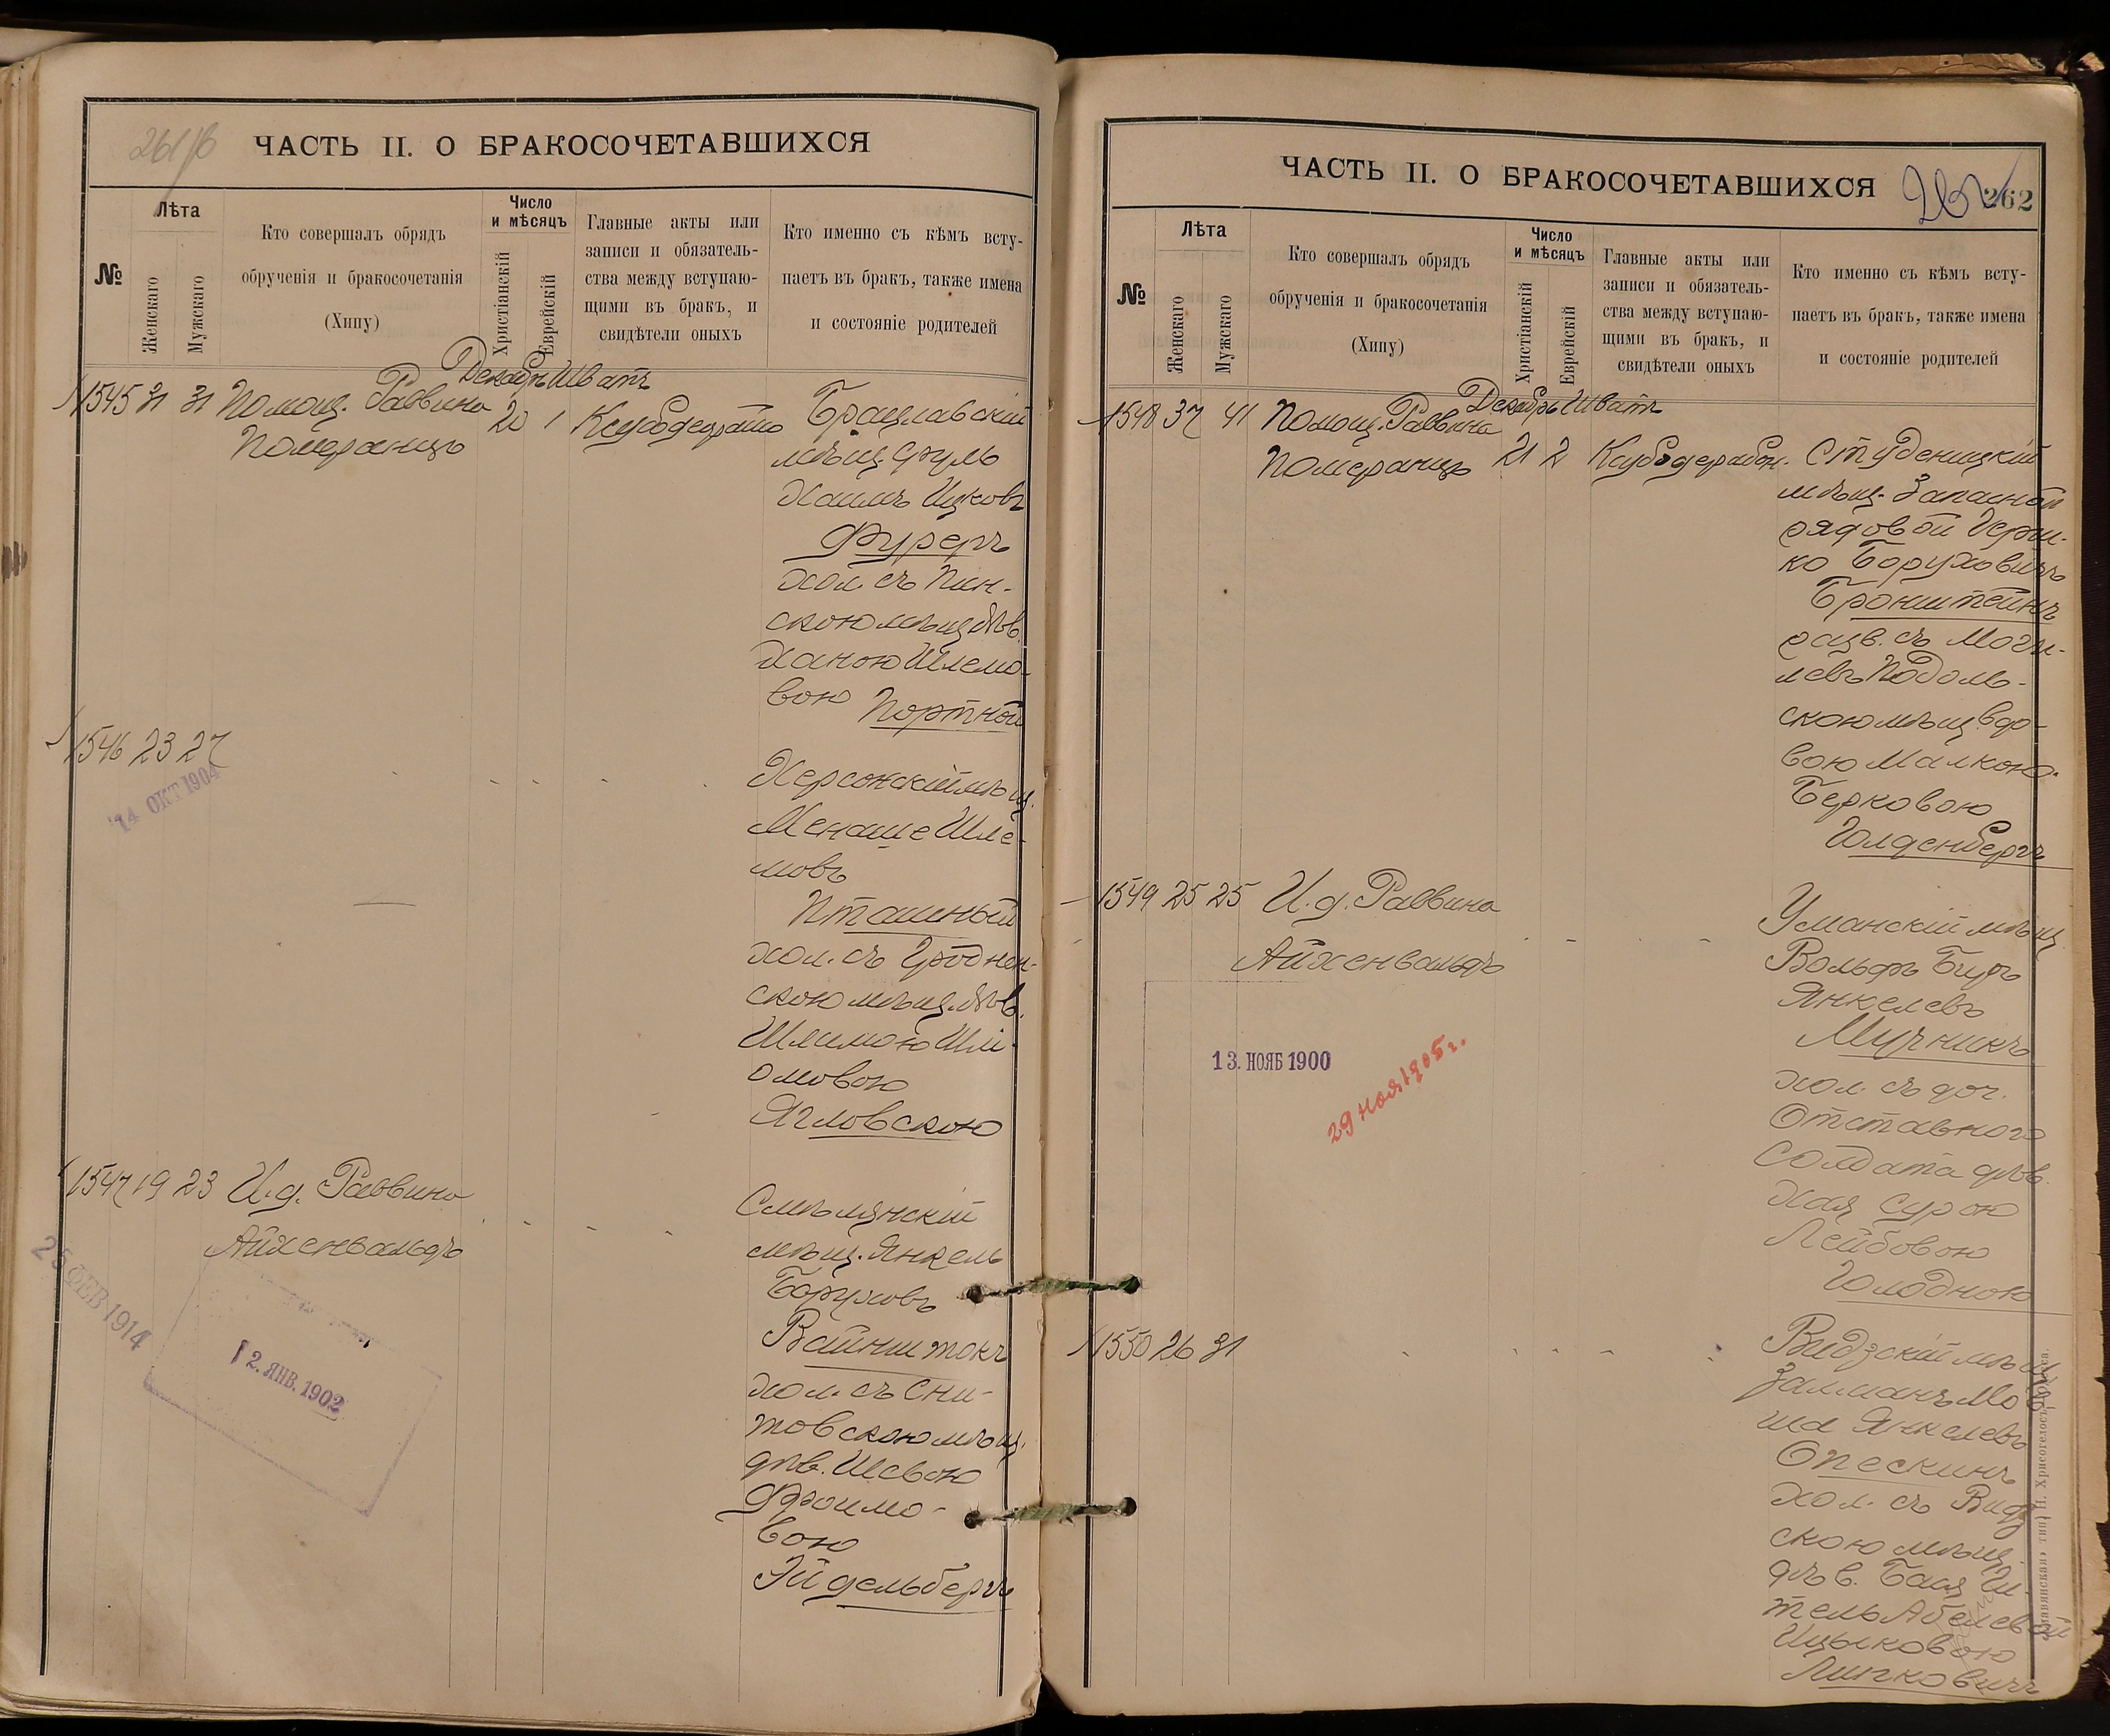 261/б
ЧАСТЬ II. О БРАКОСОЧЕТАВШИХСЯ
№
Лѣта
Женскаго
Мужскаго
Кто совершалъ обрядъ
обрученія и бракосочетанія
(Хипу)
Число
и мѣсяцъ
Христіанскій
Еврейскій
Главные акты или
записи и обязатель-
ства между вступаю-
щими въ бракъ, и
свидѣтели оныхъ
Кто именно съ кѣмъ всту-
паетъ въ бракъ, также имена
и состояніе родителей
Декабрь Шватъ
1545 31 31 Помощ. Раввина 20 1
Померанцъ
Брацлавскій
мѣщ. Сруль
Хаимъ Ицковъ
Фуреръ
хол. съ Пин-
скою мѣщ. дѣв.
Ханою Шлемо-
вою Портной
1546 23 27
14 ОКТ 1904
Херсонскій мѣщ.
Менаше Шле-
мовъ
Пташный
хол. съ Гроднен-
скою мѣщ. дѣв.
Шлимою Шлі-
омовою
Ягловскою
1547 19 23 И. д. Раввина
Айхенвальдъ
25 ФЕВ 1914
12. ЯНВ. 1902
Смѣлянскій
мѣщ. Янкель
Боруховъ
Вайнштокъ
хол. съ Сни-
товскою мѣщ.
дѣв. Шевою
Фроимо-
вою
Эйдельбергъ
ЧАСТЬ II. О БРАКОСОЧЕТАВШИХСЯ
262
№
Лѣта
Женскаго
Мужскаго
Кто совершалъ обрядъ
обрученія и бракосочетанія
(Хипу)
Число
и мѣсяцъ
Христіанскій
Еврейскій
Главные акты или
записи и обязатель-
ства между вступаю-
щими въ бракъ, и
свидѣтели оныхъ
Кто именно съ кѣмъ всту-
паетъ въ бракъ, также имена
и состояніе родителей
Декабрь Шватъ
1548 37 41 Помощ. Раввина 21 2
Померанцъ
Студеницкій
мѣщ. Запасной
рядовой Герш-
ко Боруховичъ
Бронштейнъ
разв. съ Моги-
левъ Подоль-
скою мѣщ. вдо-
вою Малкою
Берковою
Голденбергъ
1549 25 25 И. д. Раввина
Айхенвальдъ
13. НОЯБ 1900
29 ноя 1905 г.
Уманскій мѣщ.
Вольфъ Беръ
Янкелевъ
Мучникъ
хол. съ доч.
Отставного
Солдата дѣв.
Хая Сурою
Лейбовою
Голодною
1550 26 31
Видзскій мѣщ.
Залманъ Мов-
ша Янкелевъ
Опескинъ
хол. съ Видз-
скою мѣщ.
дѣв. Бася И-
тель Абелевой
Ицыковою
Липковичъ